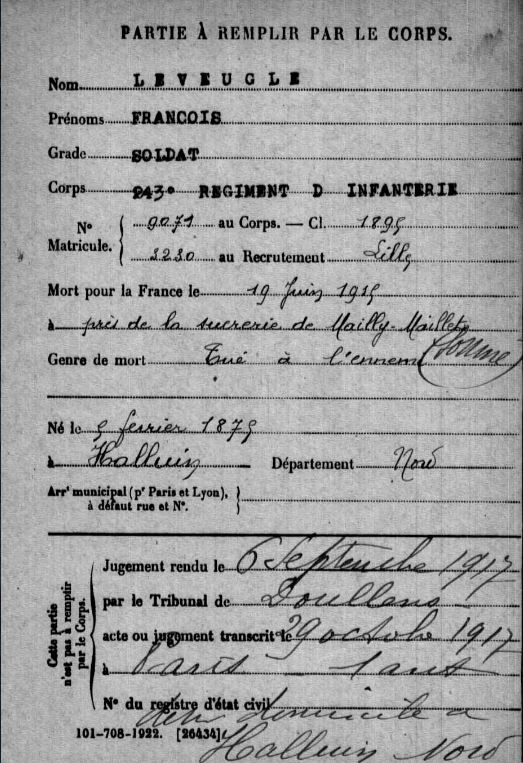 PARTIE À REMPLIR PAR LE CORPS.
Nom LEVEUGLE
Prénoms FRANCOIS
Grade SOLDAT
Corps 243e REGIMENT D INFANTERIE
N° Matricule. 9071 au Corps. — Cl. 1895
3230 au Recrutement Lille
Mort pour la France le 19 Juin 1915
à près de la sucrerie de Mailly-Maillet (Somme)
Genre de mort Tué à l'ennemi
Né le 5 février 1875
à Halluin Département Nord
Arrt municipal (pr Paris et Lyon), à défaut rue et N°.
Cette partie n'est pas à remplir par le Corps.
Jugement rendu le 6 Septembre 1917
par le Tribunal de Doullens
acte ou jugement transcrit le 29 octobre 1917
à Paris
N° du registre d'état civil
domicile à
101-708-1922. [26434]
Halluin Nord